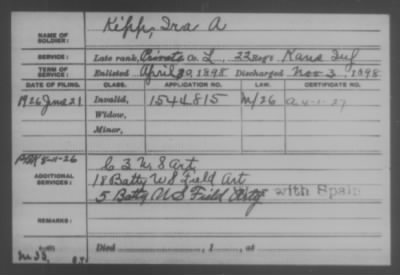 NAME OF SOLDIER: Kipp, Ira A
SERVICE: Late rank, Private Co. L, 22 Reg't Kans Inf
TERM OF SERVICE: Enlisted April 30, 1898 Discharged Nov 3, 1898
DATE OF FILING. CLASS. APPLICATION NO. LAW. CERTIFICATE NO.
1926 June 21 Invalid, 1544815 M/26 A 4-1-27
Widow,
Minor,
8-11-26
ADDITIONAL SERVICES: C 3 U S Art
18 Batty U S Field Art
5 Batty U S Field Arty with Spain
REMARKS:
Died , 1 , at